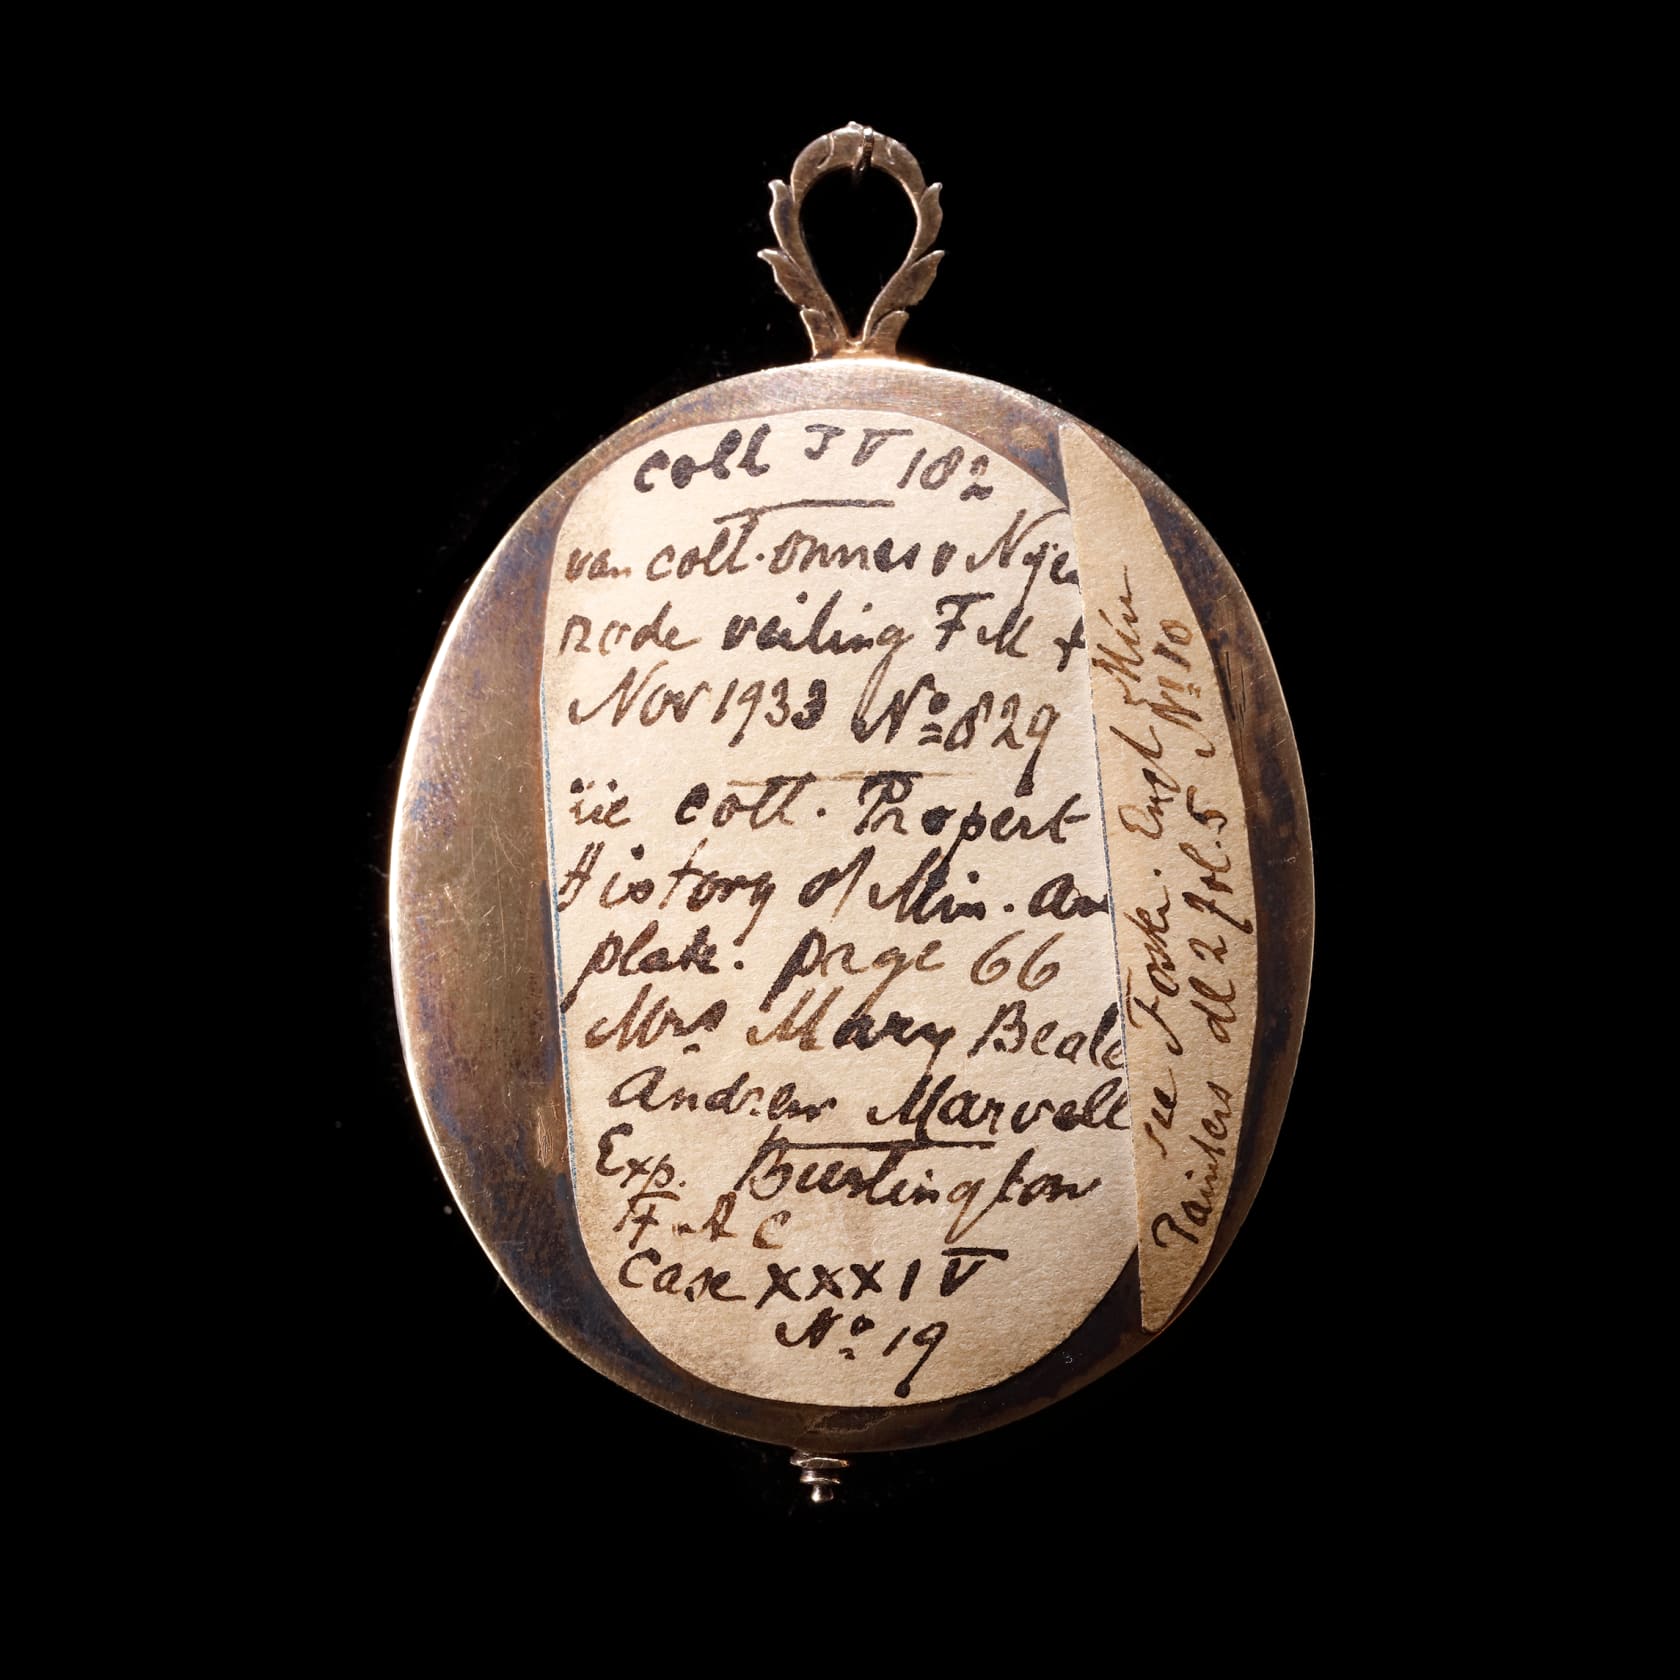 Coll IV 182
van coll. onnes v Nÿen
rode veiling F M +
Nov 1933 Nº 829
coll. Propert
History of Min. an
plate. page 66
Mrs Mary Beale
Andrew Marvell
Exp. Burlington
F. A C
Case XXXIV
Nº 19
see Foster. Engl Min
Painters dl 2 fol. 5 Nº 10